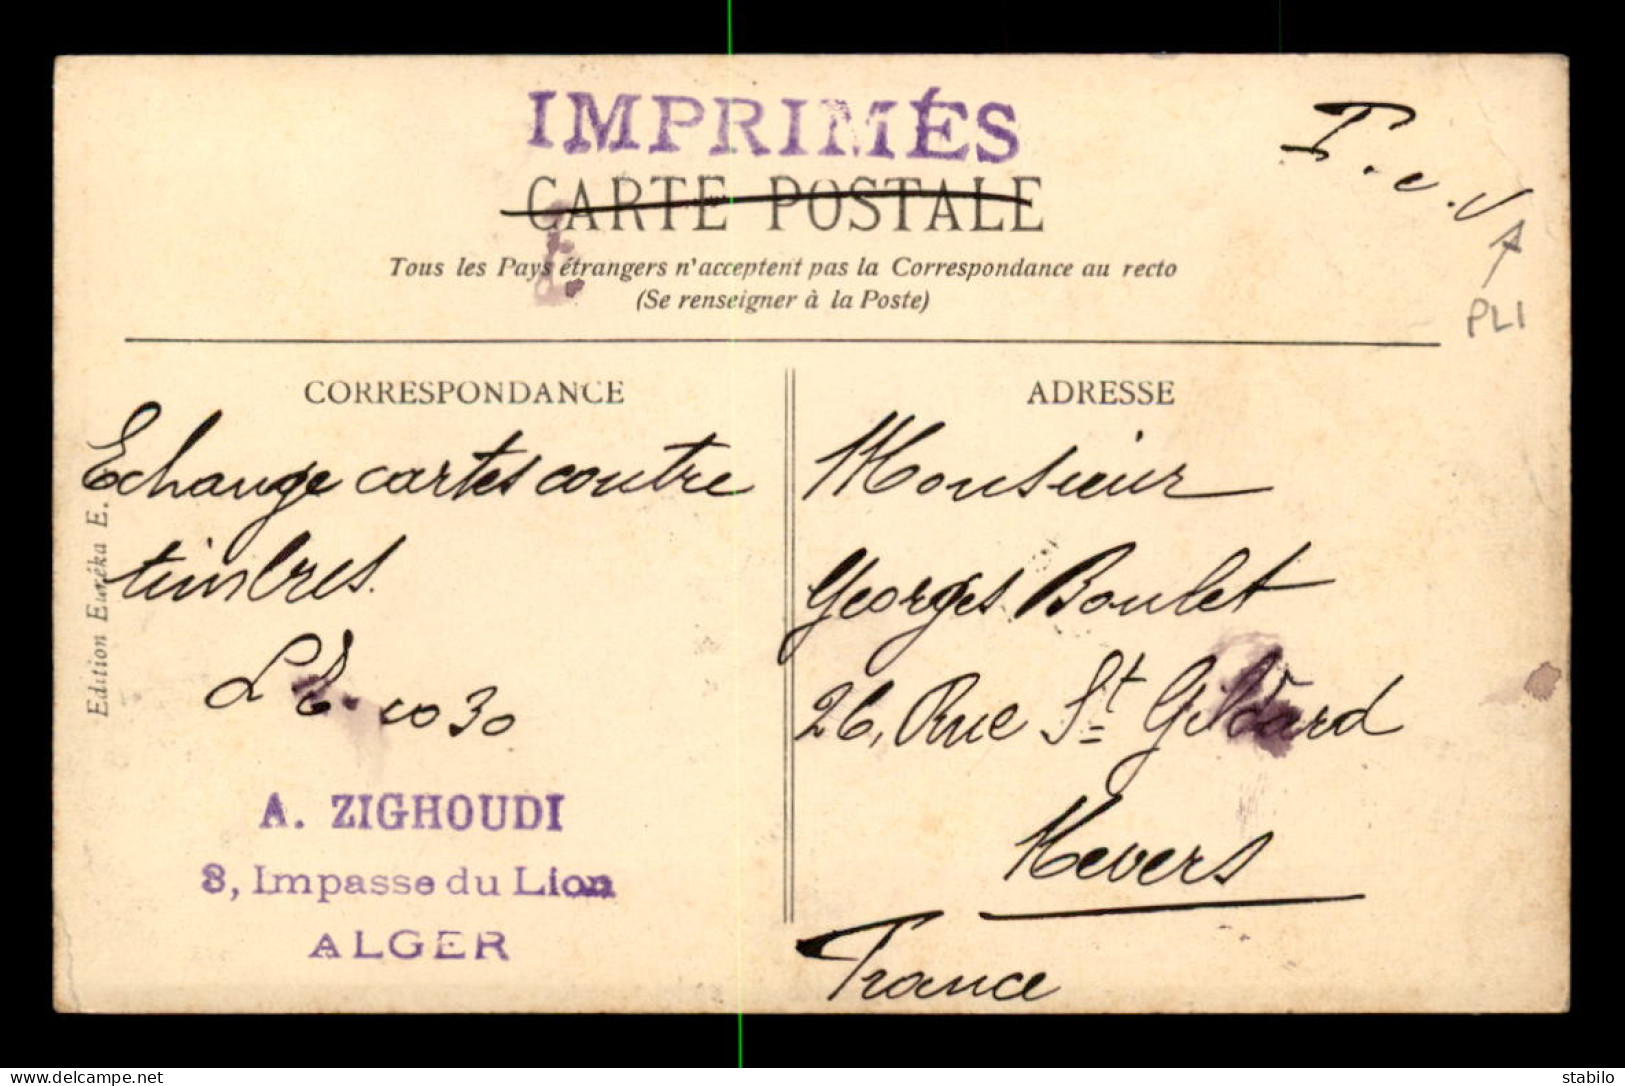 IMPRIMÉS
T. c. V
CARTE POSTALE
Tous les Pays étrangers n'acceptent pas la Correspondance au recto
(Se renseigner à la Poste)
PLI
CORRESPONDANCE
Echange cartes contre
timbres.
3030
A. ZIGHOUDI
8, Impasse du Lion
ALGER
Edition Euréka E.
ADRESSE
Monsieur
Georges Boulet
26, Rue St Gildard
Nevers
France
delcampe.net
stabilo